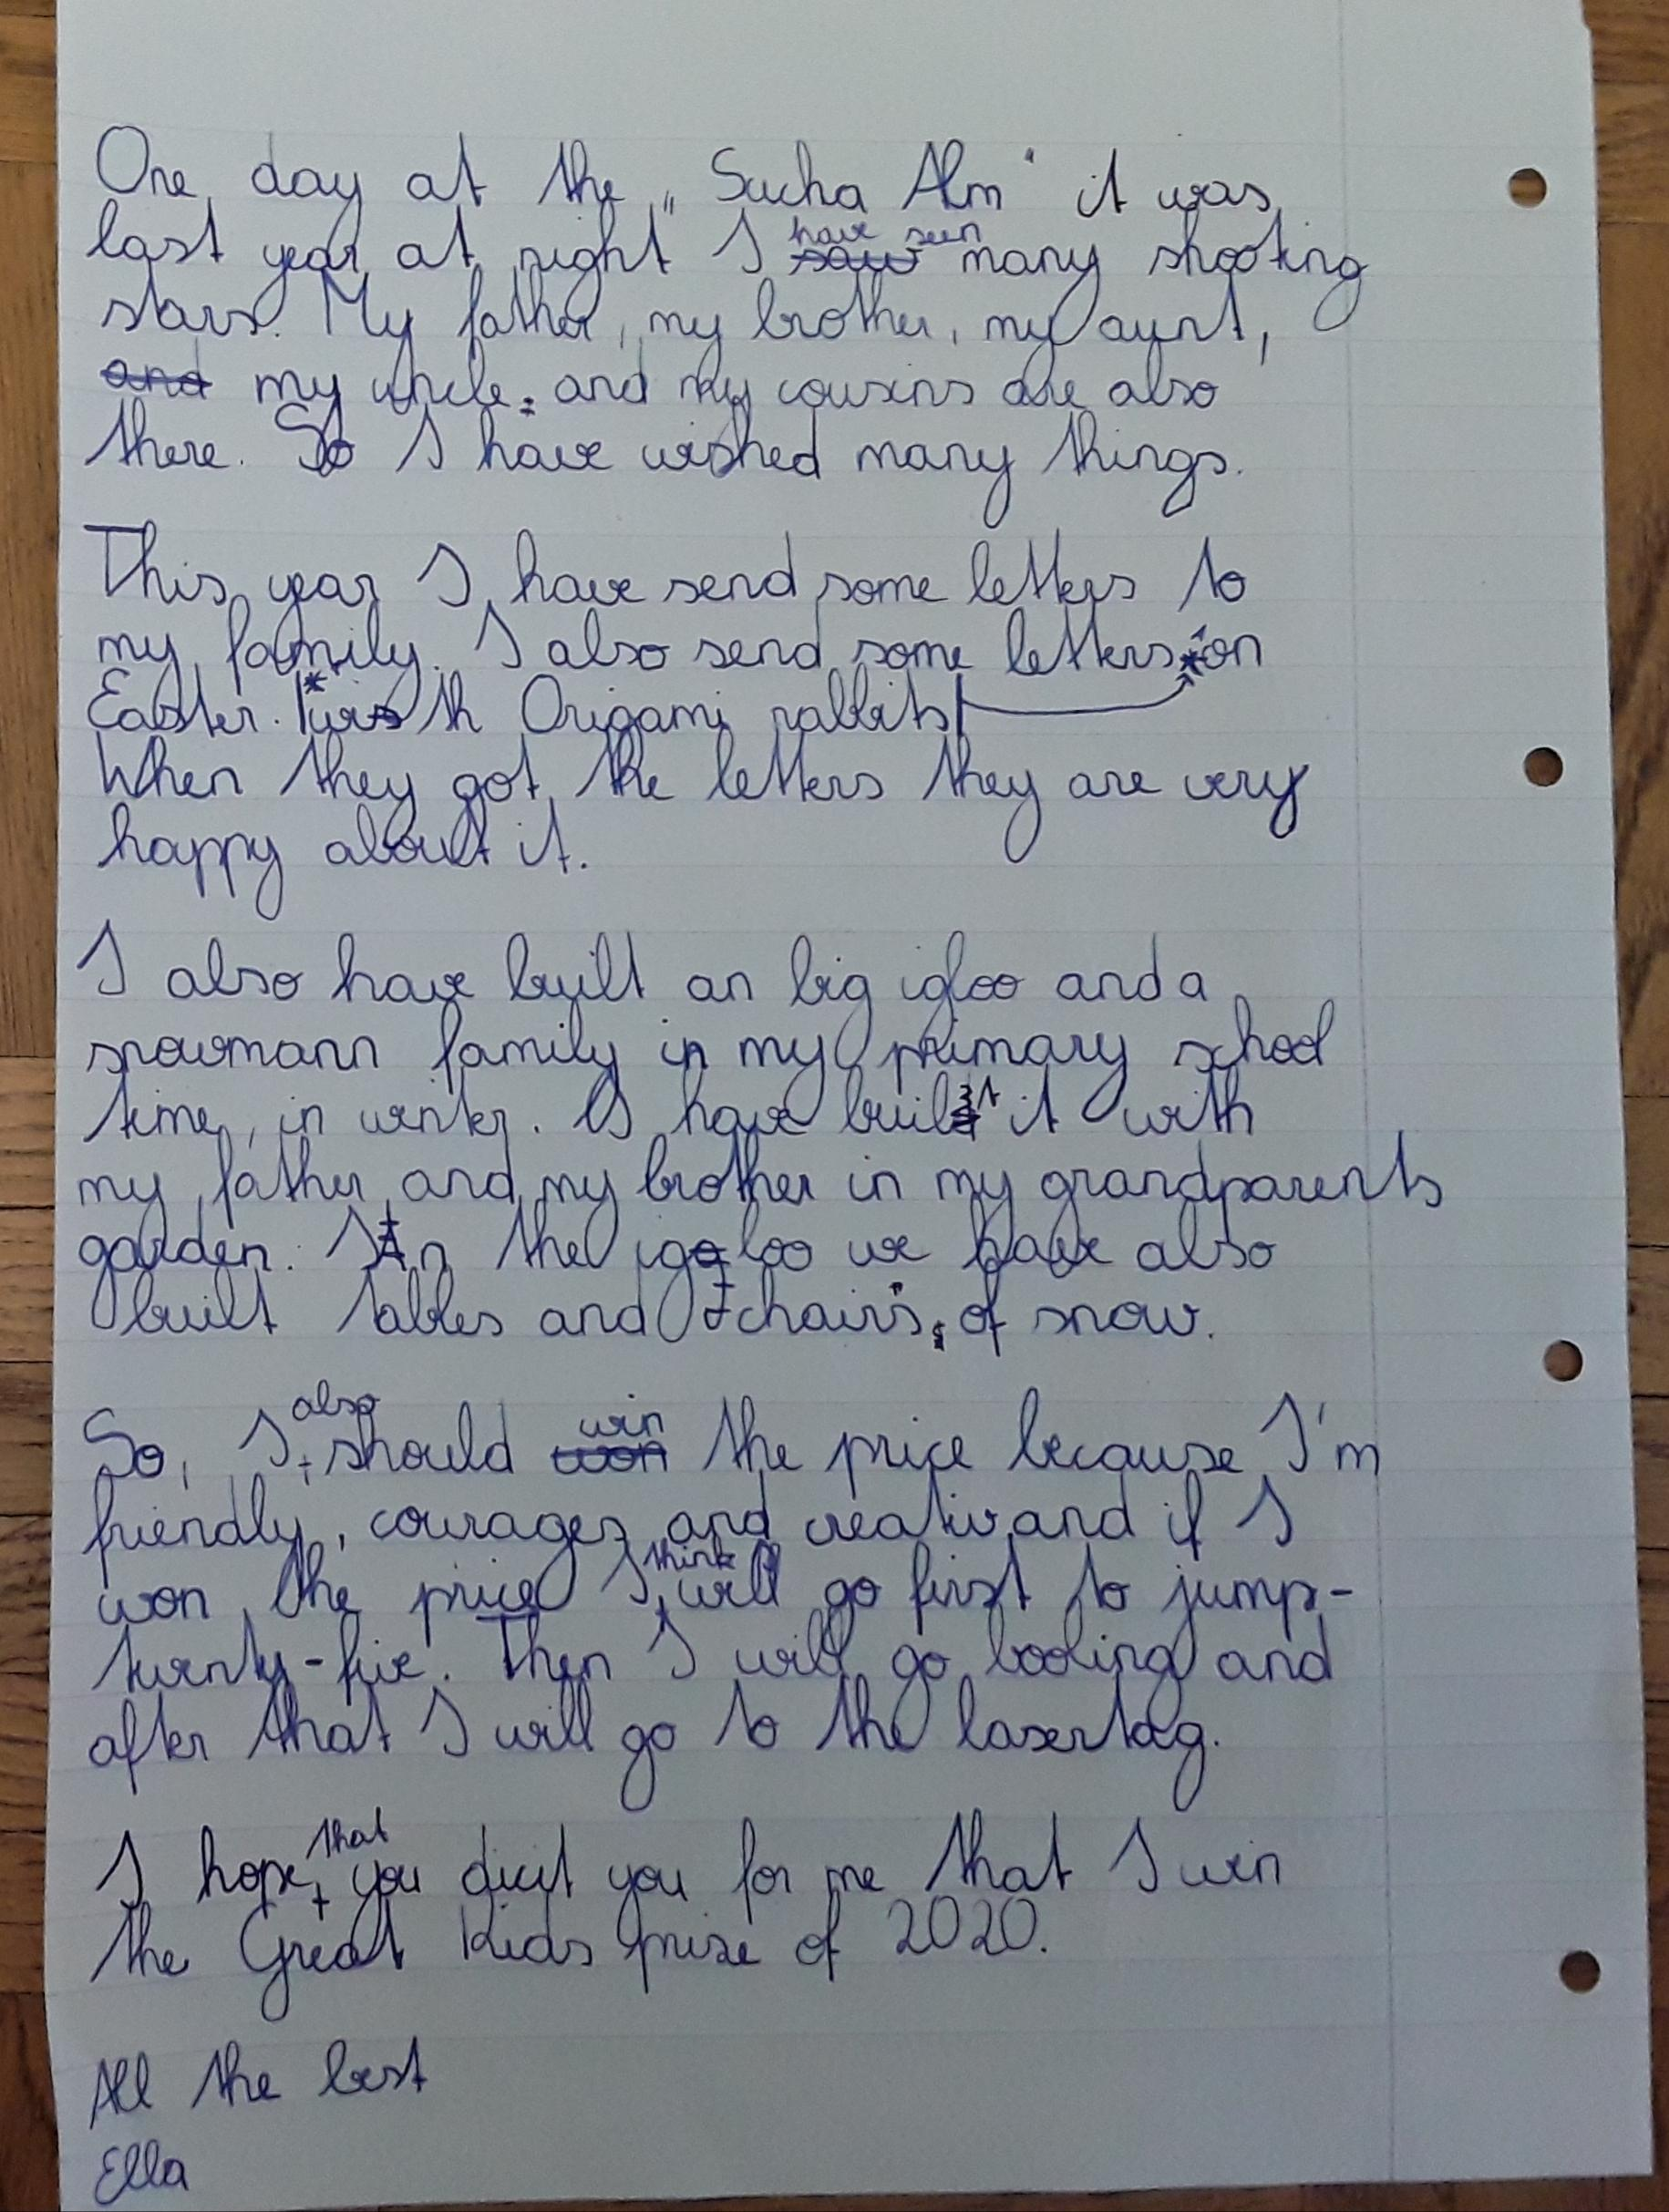 One day at the „Sucha Alm“ it was
last year at night I have seen many shooting
stars. My father, my brother, my aunt,
my uncle and my cousins are also
there. So I have wished many things.
This year I have send some letters to
my family. I also send some letters on
Easter. with Origami rabbits
When they got the letters they are very
happy about it.
I also have built an big igloo and a
snowmann family in my primary school
time, in winter. I have built it with
my father and my brother in my grandparents
garden. In the igloo we have also
built tables and chairs of snow.
So, I also should win the price because I'm
friendly, courages and creativ and if I
won the price I think will go first to jump-
twenty-five. Then I will go booling and
after that I will go to the lasertag.
I hope, that you dicit you for me that I win
the Great Kids prize of 2020.
All the best
Ella